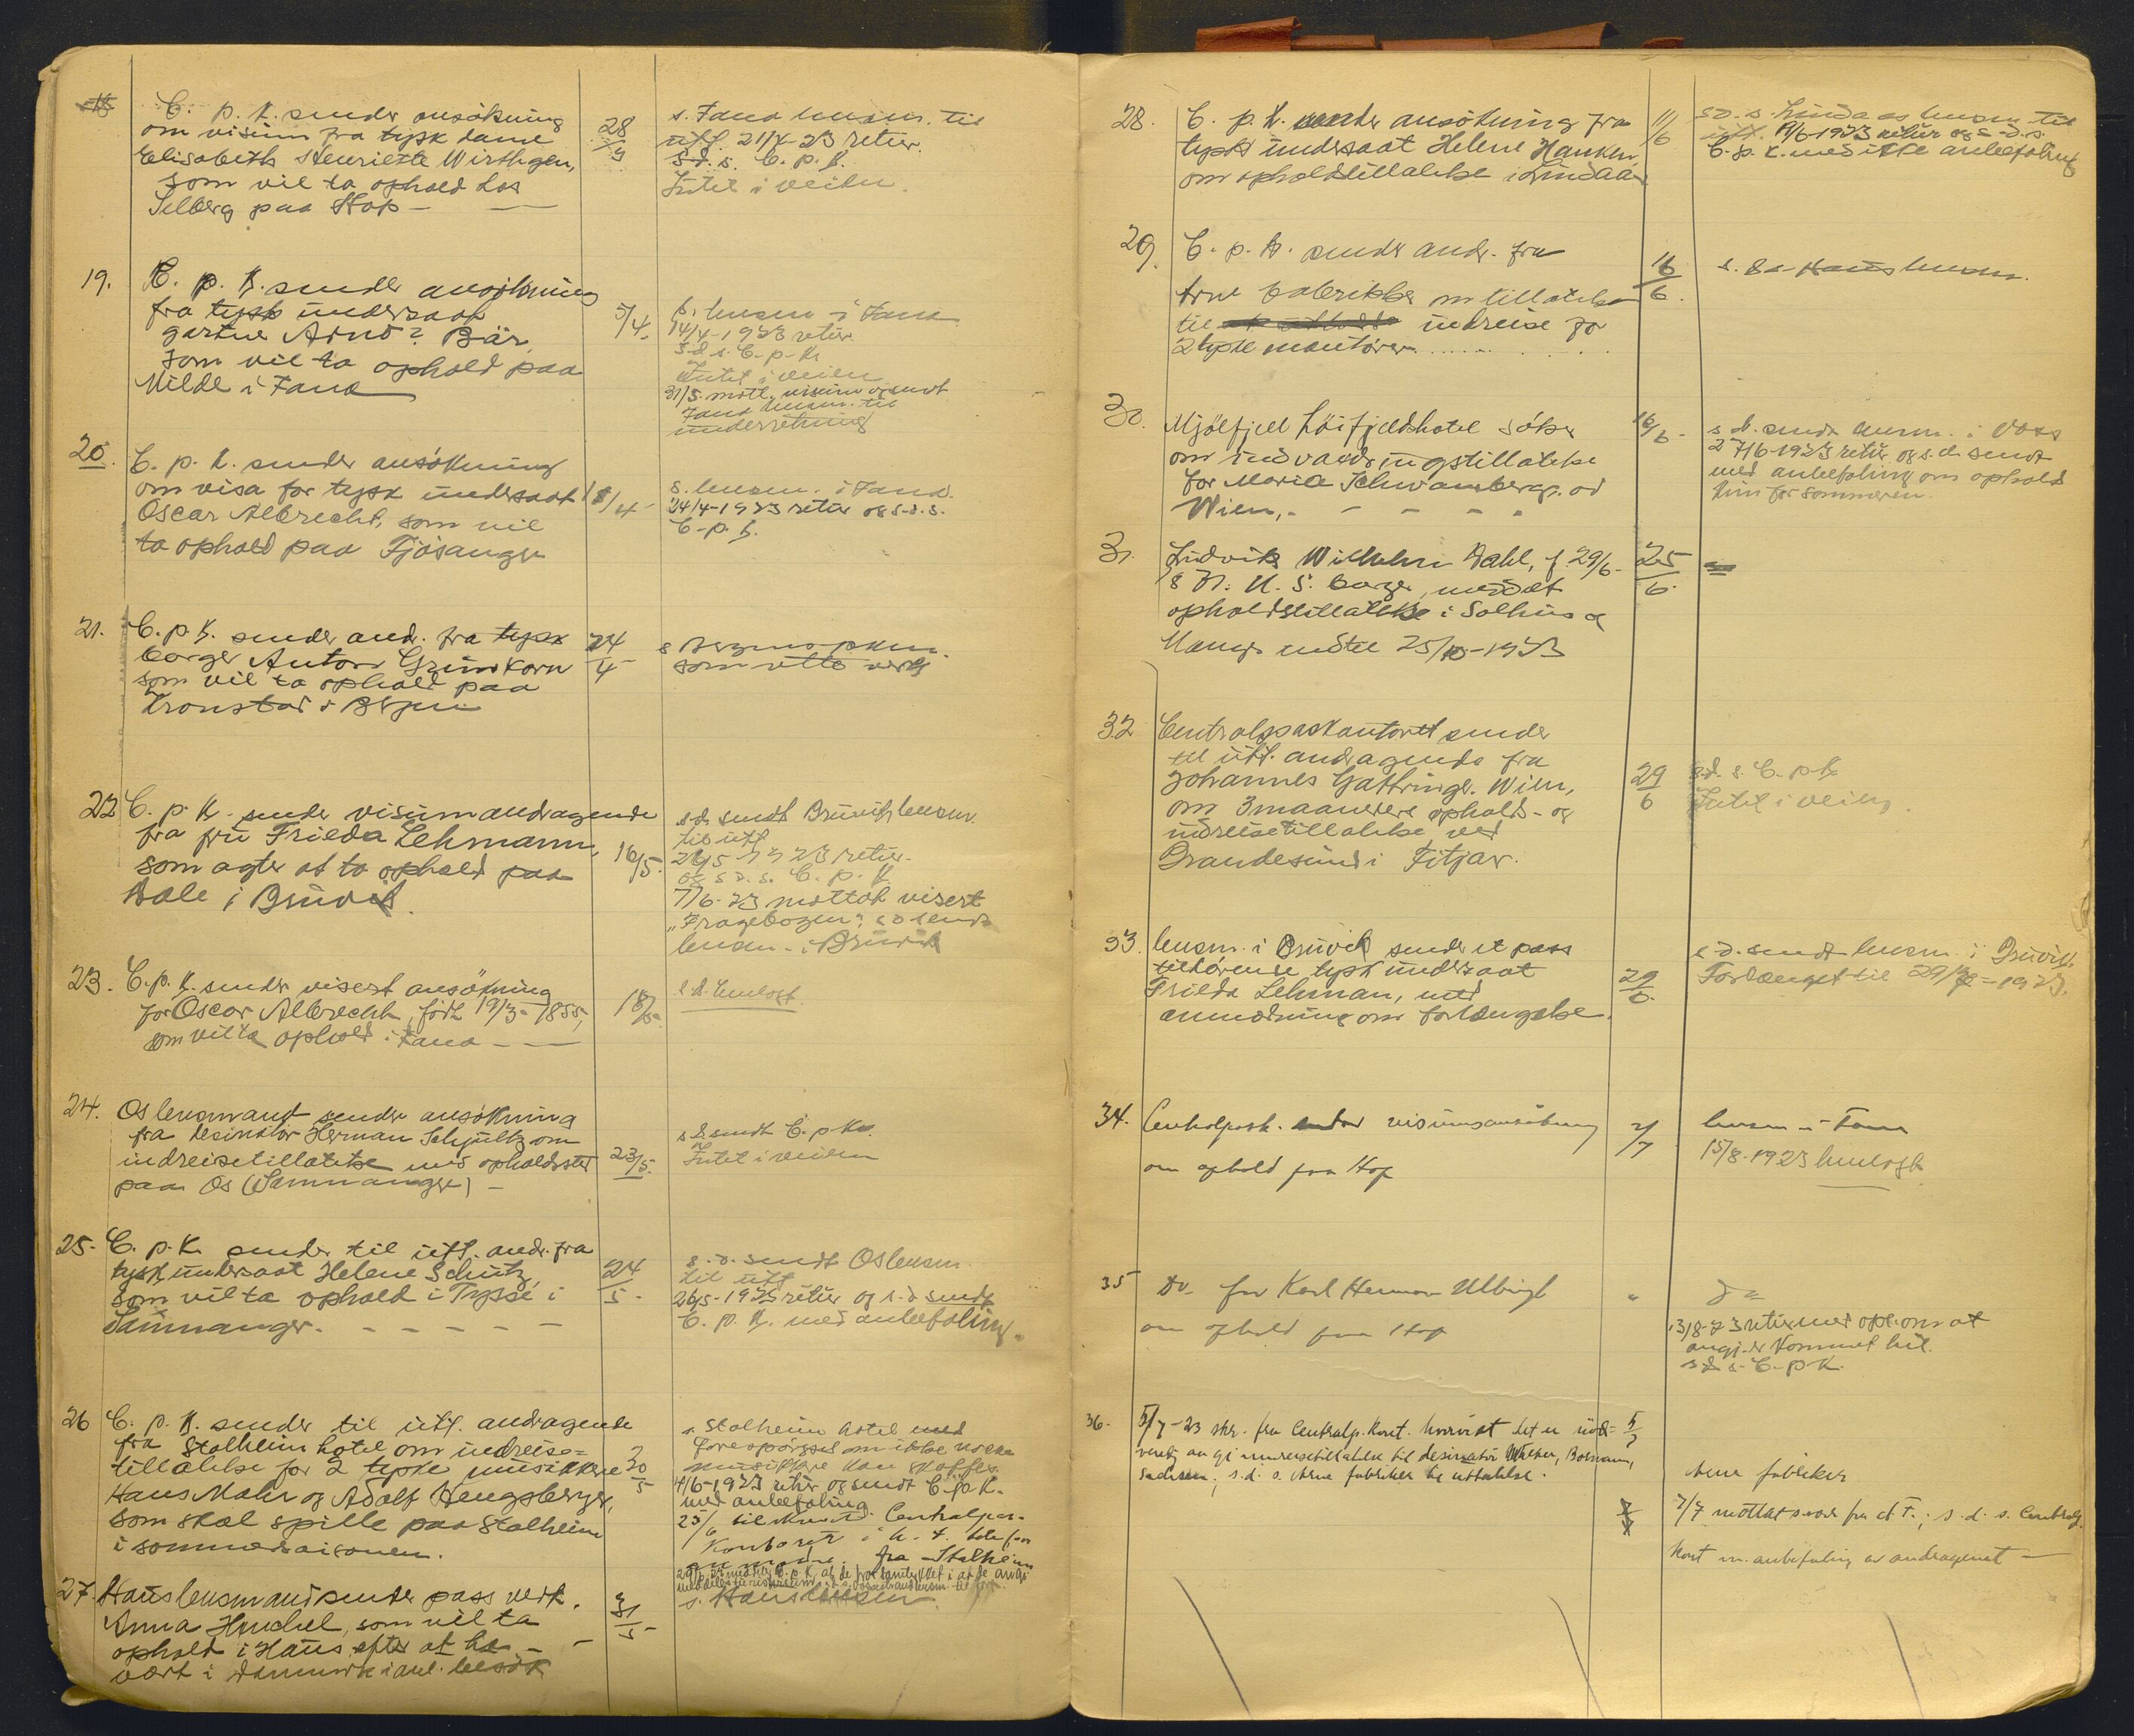 18
C. p. K. sender ansökning
om visum fra tysk dame
Elisabeth Henriette Wirthgen,
som vil ta ophold hos
Selberg paa Hop
28/3
s. Fana lensm. til
utt. 21/4-23 retur.
s.d. s. C. p. K.
Intet i veien.
19.
C. p. K. sender ansökning
fra tysk undersaat
gartner Arno? Bär,
som vil ta ophold paa
Milde i Fana
5/4.
s. lensm i Fana
14/4-1923 retur.
s.d. s. C-p-K
Intet i veien
31/5. mott. visum og sendt
Fana lensm. til
underretning
20.
C. p. K. sender ansökning
om visa for tysk undersaat
Oscar Albrecht, som vil
ta ophold paa Fjösanger
18/4
s. lensm. i Fana.
24/4-1923 retur og s.d.s.
C-p.K.
21.
C. p. K. sender andr. fra tysk
borger Anton Grünkorn
som vil ta ophold paa
Kronstad i Bergen
24/4
s Bergens pkm.
som rette vedk
22
C. p. K. sender visumandragende
fra fru Frieda Lehmann,
som agter at ta ophold paa
Dale i Bruvik.
16/5.
s.d. sendt Bruvik lensm.
til utt
26/5-1923 retur.
og s.d. s. C. p. K
7/6-23 mottok visert
"Fragebogen", s d sendt
lensm. i Bruvik
23.
C. p. K. sender visert ansökning
for Oscar Albrecht, född 19/3-1855,
som vil ta ophold i Fana
18/5.
s.d. henlagt.
24.
Os lensmand sender ansökning
fra desinatör Herman Schjultz om
indreisetillatelse med opholdssted
paa Os (Samnanger)
23/5.
s.d. sendt C. p K.
Intet i veien
25.
C. p. K. sender til utt. andr. fra
tysk undersaat Helene Schütz,
som vil ta ophold i Tysse i
Samnanger.
24/5.
s. d. sendt Os lensm.
til utt
26/5-1923 retur og s. d sendt
C. p. K. med anbefaling.
26
C. p. K. sender til utt. andragende
fra Stalheim hotel om indreise=
tillatelse for 2 tyske musikkere
Hans Mohr og Adolf Hengsberger,
som skal spille paa Stalheim
i sommersaisonen.
30/5
s. Stalheim hotel med
forespörgsel om ikke norske
musikkere kan skaffes.
4/6-1923 retur og sendt C. p K.
med anbefaling
25/6 tilskrevet Centralpas-
kontoret i h. t. telefon
fra Stalheim
27.
Haus lensmand sender pass vedk.
Anna Henchel, som vil ta
ophold i Haus efter at ha
vært i Danmark i anl. besök
31/5
s. Haus lensm
28.
C. p. K. sender ansökning fra
tysk undersaat Helene Hanken
om opholdstillatelse i Lindaas
11/6
s.d. s. Lindaas lensm til
utt. 19/6-1923 retur og s.d.s.
C. p. K. med ikke anbefaling
29.
C. p. K. sender andr. fra
Arne Fabrikker om tillatelse
til indreise for
2 tyske montörer
16/6.
s. d. s Haus lensm.
30.
Mjölfjell höifjeldshotel söker
om indvandringstillatelse
for Maria Schwamberg. av
Wien,
16/6
s. d. sendt lensm. i Voss
27/6-1923 retur og s. d. sendt
med anbefaling om ophold
kun for sommeren.
31.
Ludvik Wilhelm Dahl, f 29/6-
8 N. U. S. borger, meddelt
opholdstillatelse i Solhus og
Manger indtil 25/10-1923
25/6.
32
Centralpaskontoret sender
til utt. andragende fra
Johannes Gattringer. Wien,
om 3 maaneders opholds- og
indreisetillatelse ved
Brandesund i Fitjar.
29/6
s.d. s. C. p K
Intet i veien.
33.
lensm. i Bruvik sender et pass
tilhörende tysk undersaat
Frieda Lehman, med
anmodning om forlængelse.
29/6.
s. d. sendt lensm. i Bruvik.
Forlænget til 29/7-1923.
34.
Centralpask. sender visumsansökning
om ophold paa Hop
2/7
lensm i Fana
15/8-1923 henlagt
35
Do. for Karl Herman Ulbrigt
om ophold paa Hop
"
Do
13/8-23 retur med opl. om at
angj. er kommet hit.
s.d s. C-p K.
36.
5/7-23 skr. fra Centralp.kont. hvorvidt det er nöd=
vendig aa gi innreisetillatelse til desinatör Walter, Bormann,
Sachsen; s.d. s. Arne fabrikker til uttalelse.
5/7
Arne fabriker
7/7
7/7 mottat svar fra d F.; s. d. s. Centralp.
kont m. anbefaling av andragenet